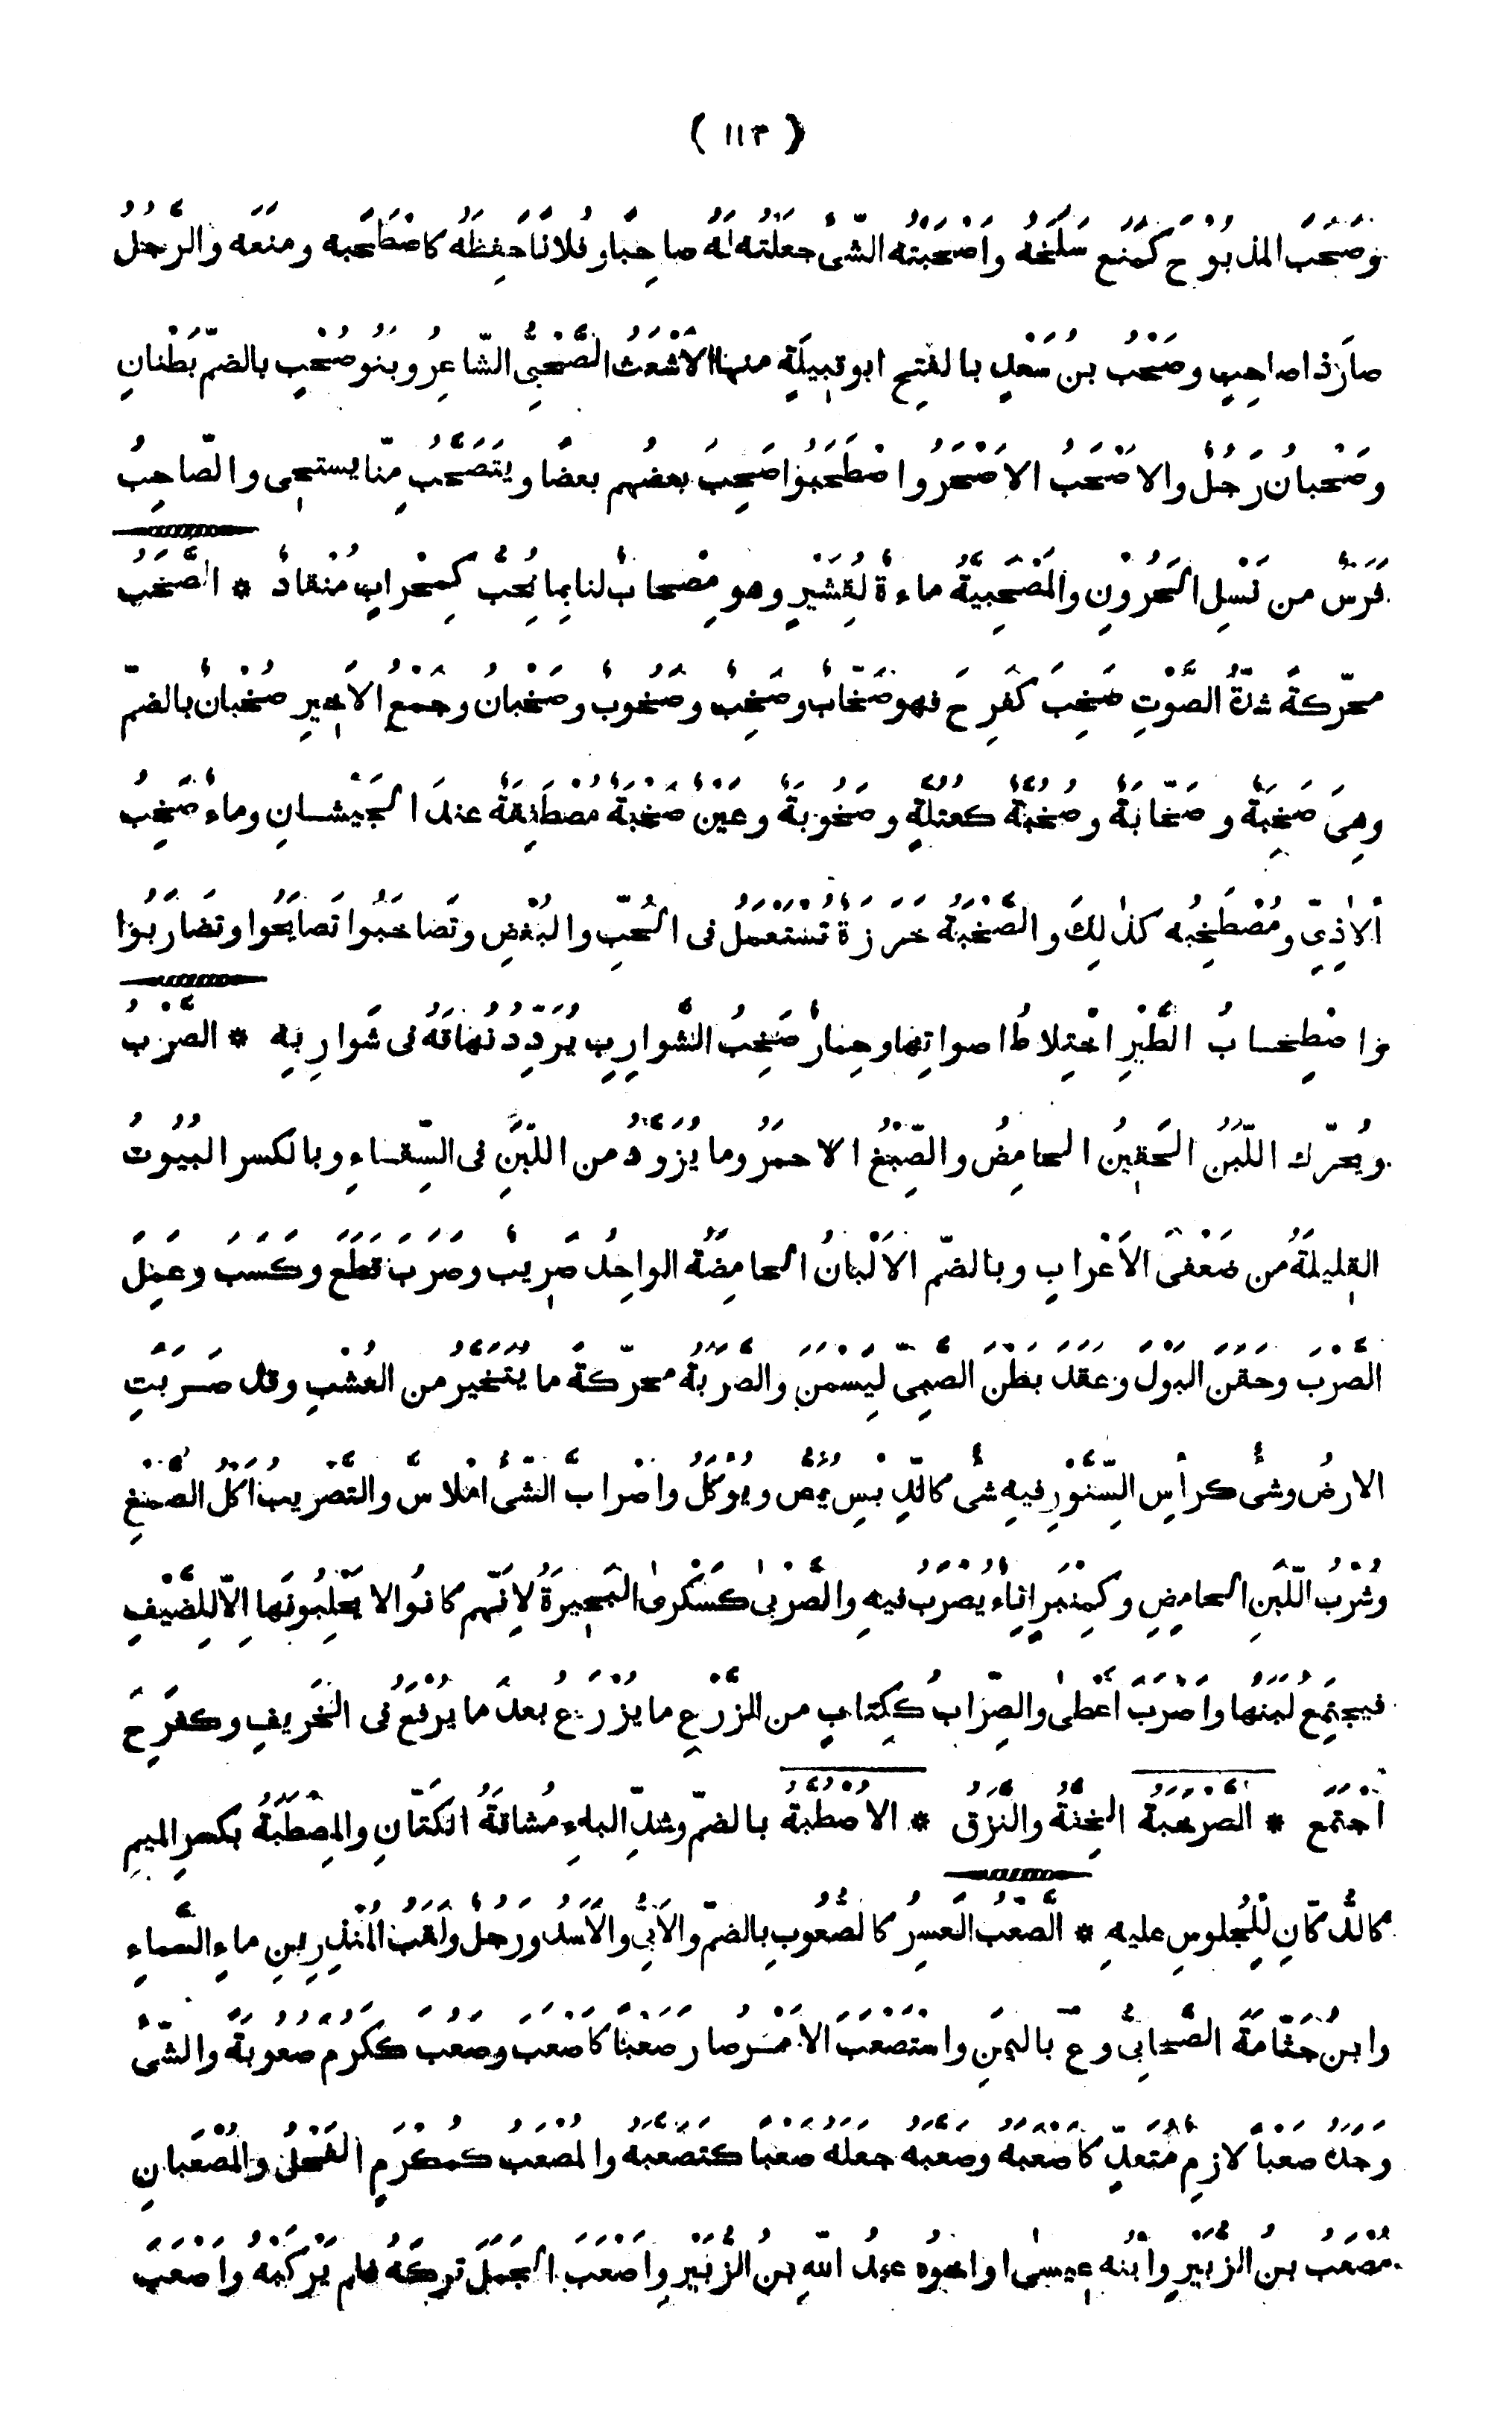 ( ١١٣ )
وصَحَبَ المذبوحَ كمَنَعَ سَلَخَهُ واَصْحَبْتُه الشّئَ جعلتُه لَهُ صاحِبًا وفُلانًا حَفِظَهُ كاصْطَحَبَه ومَنَعَه والرَّجُلُ
صارَ ذا صاحِبٍ وصَحْبُ بنُ سَعْدٍ بالفتحِ ابو قبيلَةٍ منها الاَشْعَثُ الصَّحْبِىُّ الشّاعِرُ وبَنُو صُحْبٍ بالضمّ بَطْنانِ
وصَحْبانُ رَجُلٌ والاَصْحَبُ الاَصْحَرُ واصْطَحَبُوا صَحِبَ بعضُهم بعضًا ويَتَصَحَّبُ مِنّا يستحيى والصّاحِبُ
فرسٌ من نَسْلِ الحَرُوْنِ والمَصْحَبِيَّةُ ماءةٌ لِقُشَيْرٍ وهو مِصْحابٌ لنا بما نُحِبُّ كمِحْرابٍ مُنْقادٌ * الصَّخَبُ
محرّكةً شدّةُ الصَّوْتِ صَخِبَ كفَرِحَ فهو صَخّابٌ وصَخِبٌ وصَخُوبٌ وصَخْبانُ وجَمْعُ الاَخيرِ صُخْبانٌ بالضمّ
وهِىَ صَخِبَةٌ وصَخّابَةٌ وصُخُبَّةٌ كعُتُلَّةٍ وصَخُوبَةٌ وعَيْنٌ صَخْبَةٌ مُصْطَفِقَةٌ عندَ الجَيْشانِ وماءٌ صَخِبُ
اْلاٰذِىّ ومُصْطَخِبُه كذٰلِكَ والصَّخْبَةُ خَرَزَةٌ تُسْتَعْمَلُ فى الحُبِّ والبُغْضِ وتَصاخَبُوا تَصايَحُوا وتَضارَبُوا
واصْطِخابُ الطَّيْرِ اخْتِلاطُ اصواتِها وحِمارٌ صَخِبُ الشَّوارِبِ يُرَدِّدُ نُهاقَهُ فى شَوارِبِهِ * الصَّرْبُ
ويُحرّك اللّبَنُ الحَقِيْنُ الحامِضُ والصِّبْغُ الاحمَرُ وما يُزَوَّدُ من اللّبَنِ فى السِّقاءِ وبالكسر البُيُوتُ
القليلَةُ من ضَعْفَى الاَعْرابِ وبالضمّ الاَلْبانُ الحامِضَةُ الواحِدُ صَرِيبٌ وصَرَبَ قَطَعَ وكَسَبَ وعَمِلَ
الصَّرْبَ وحَقَنَ البَوْلَ وعَقَدَ بَطْنُ الصَّبِىّ لِيَسْمَنَ والصَّرَبَةُ محرّكةً ما يُتَخَيَّرُ من العُشْبِ وقد صَرَبَتِ
الارضُ وشىٌ كرأسِ السِّنَّوْرِ فيه شىٌ كالدِّبْسِ يُمَصُّ ويُؤكَلُ واصْرابَّ الشّئُ امْلاسَّ والتَّصْرِيبُ اَكْلُ الصَّمْغِ
وشُرْبُ اللّبَنِ الحامِضِ وكمِنْبَرٍ اِناءٌ يُصْرَبُ فيه والصَّرْبٰى كسَكْرىٰ البَحِيرَةُ لِاَنّهم كانُوا لا يَحْلِبُونَها اِلّا لِلضَّيْفِ
فيجتَمِعُ لبنُها واَصْرَبَ اَعْطٰى والصِّرابُ ككِتابٍ من الزَّرْعِ ما يُزْرَعُ بعدَ ما يُرْفَعُ فى الخَرِيفِ وكفَرِحَ
اجْتَمَعَ * الصَّرْهَبَةُ الخِفَّةُ والنَّزَقُ * الاُصْطُبَّةُ بالضمّ وشدّ الباءِ مُشاقَةُ الكَتّانِ والمِصْطَبَّةُ بكسرِ الميمِ
كالدُّكّانِ لِلْجُلوسِ عليه * الصَّعْبُ العَسِرُ كالصُّعْبُوبِ بالضمّ والاَبِىُّ والاَسَدُ ورَجُلٌ ولَقَبُ المُنْذِرِ بنِ ماءِ السَّماءِ
وابنُ جَثّامَةَ الصَّحابِىُّ وع باليَمَنِ واسْتَصْعَبَ الاَمْرُ صارَ صَعْبًا كاَصْعَبَ وصَعُبَ ككَرُمَ صُعُوبَةً والشّئَ
وجَدَهُ صَعْبًا لازِمٌ مُتَعَدٍّ كاَصْعَبَهُ وصَعَّبَهُ جعلَهُ صَعْبًا كتَصَعَّبَهُ والمُصْعَبُ كمُكْرَمٍ الفَحْلُ والمُصْعَبانِ
مُصْعَبُ بنُ الزُّبَيْرِ وابْنُه عِيسٰى او اخوه عبدُ اللّٰهِ بنُ الزُّبَيْرِ واَصْعَبَ الجَمَلَ تَرَكَهُ فلم يَرْكَبْهُ واَصْعَبَ